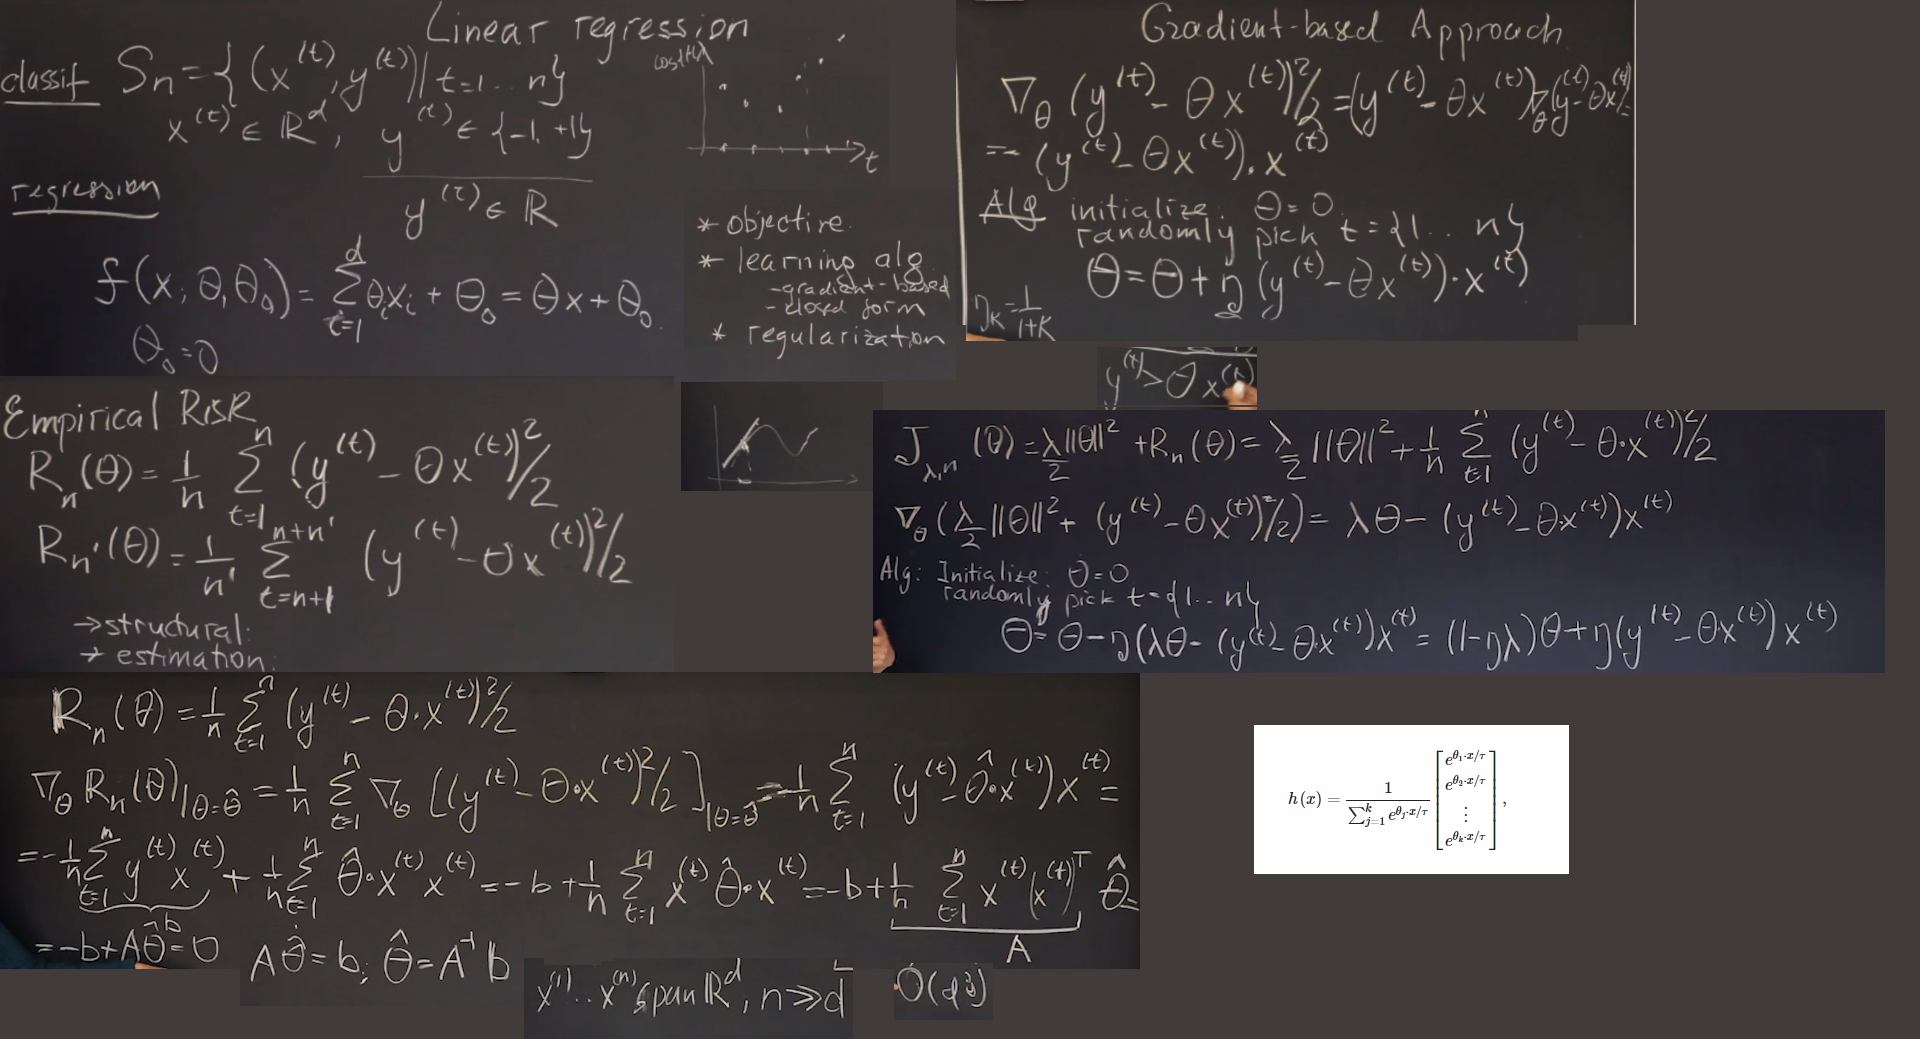 Linear regression
classif Sₙ = { (x⁽ᵗ⁾, y⁽ᵗ⁾) | t=1... n}
x⁽ᵗ⁾ ∈ ℝᵈ, y⁽ᵗ⁾ ∈ {-1, +1}
regression y⁽ᵗ⁾ ∈ ℝ
f(x, θ, θ₀) = ∑_{t=1}^{d} θᵢxᵢ + θ₀ = θx + θ₀
θ₀ = 0
t
* objective
* learning alg
- gradient-based
- closed form
* regularization
Gradient-based Approach
∇_θ (y⁽ᵗ⁾ - θx⁽ᵗ⁾)²/2 = (y⁽ᵗ⁾ - θx⁽ᵗ⁾) ∇_θ (y⁽ᵗ⁾ - θx⁽ᵗ⁾) =
= - (y⁽ᵗ⁾ - θx⁽ᵗ⁾) · x⁽ᵗ⁾
Alg initialize: θ = 0
randomly pick t = {1... n}
θ = θ + η (y⁽ᵗ⁾ - θx⁽ᵗ⁾) · x⁽ᵗ⁾
η_K = 1/(1+K)
y⁽ᵗ⁾ > θ x⁽ᵗ⁾
Empirical Risk
Rₙ(θ) = 1/n ∑_{t=1}^{n} (y⁽ᵗ⁾ - θx⁽ᵗ⁾)²/2
Rₙ'(θ) = 1/n' ∑_{t=n+1}^{n+n'} (y⁽ᵗ⁾ - θx⁽ᵗ⁾)²/2
→ structural:
→ estimation:
J_{λ,n} (θ) = λ/2 ||θ||² + Rₙ(θ) = λ/2 ||θ||² + 1/n ∑_{t=1}^{n} (y⁽ᵗ⁾ - θ·x⁽ᵗ⁾)²/2
∇_θ (λ/2 ||θ||² + (y⁽ᵗ⁾ - θx⁽ᵗ⁾)²/2) = λθ - (y⁽ᵗ⁾ - θ·x⁽ᵗ⁾)x⁽ᵗ⁾
Alg: Initialize: θ = 0
randomly pick t = {1.. n}
θ = θ - η(λθ - (y⁽ᵗ⁾ - θ·x⁽ᵗ⁾)x⁽ᵗ⁾ = (1-ηλ)θ + η(y⁽ᵗ⁾ - θ·x⁽ᵗ⁾)x⁽ᵗ⁾
Rₙ(θ) = 1/n ∑_{t=1}^{n} (y⁽ᵗ⁾ - θ·x⁽ᵗ⁾)²/2
∇_θ Rₙ(θ)|_{θ=θ̂} = 1/n ∑_{t=1}^{n} ∇_θ [(y⁽ᵗ⁾ - θ·x⁽ᵗ⁾)²/2]|_{θ=θ̂} = -1/n ∑_{t=1}^{n} (y⁽ᵗ⁾ - θ̂·x⁽ᵗ⁾)x⁽ᵗ⁾ =
= -1/n ∑_{t=1}^{n} y⁽ᵗ⁾x⁽ᵗ⁾ + 1/n ∑_{t=1}^{n} θ̂·x⁽ᵗ⁾x⁽ᵗ⁾ = -b + 1/n ∑_{t=1}^{n} x⁽ᵗ⁾θ̂·x⁽ᵗ⁾ = -b + 1/n ∑_{t=1}^{n} x⁽ᵗ⁾(x⁽ᵗ⁾)ᵀ θ̂ =
b
A
= -b + Aθ̂ = 0
Aθ̂ = b; θ̂ = A⁻¹ b
x⁽¹⁾...x⁽ⁿ⁾ span ℝᵈ, n ≫ d
O(d³)
h(x) = 1/∑_{j=1}^{k} e^{θⱼ·x/τ} [e^{θ₁·x/τ} e^{θ₂·x/τ} ⋮ e^{θₖ·x/τ}],